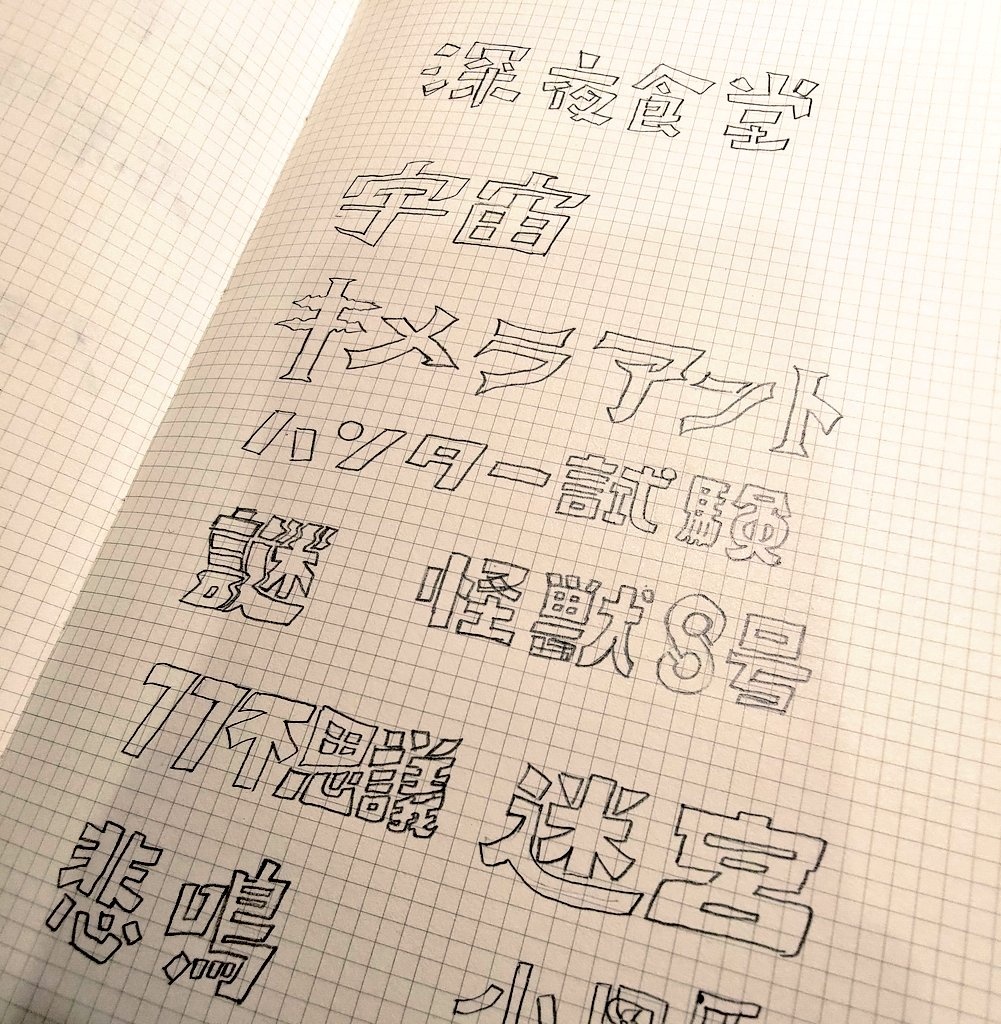 深夜食堂
宇宙
キメラアント
ハンター試験
謎 怪獣8号
77不思議 迷宮
悲鳴
小